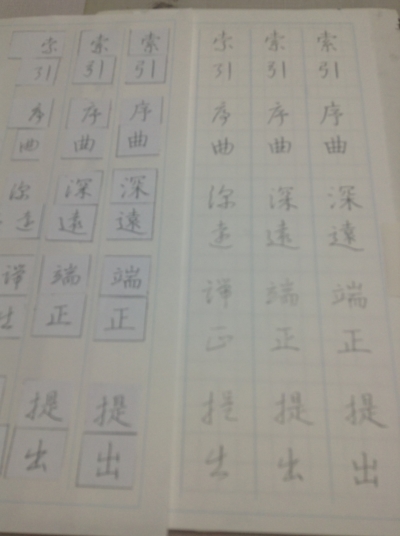 索引 序曲 深遠 端正 提出
索引 序曲 深遠 端正 提出
索引 序曲 深遠 端正 提出
索引 序曲 深遠 端正 提出
索引 序曲 深遠 端正 提出
索引 序曲 深遠 端正